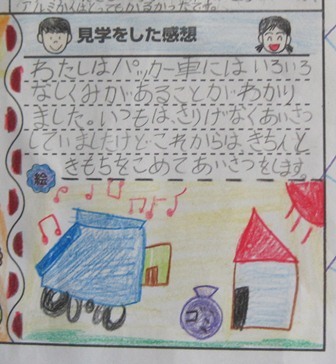 アルミかんはとってもかるかったです。
見学をした感想
わたしはパッカー車にはいろいろ
なしくみがあることがわかり
ました。いつもは、さりげなくあいさつ
していましたけどこれからは、きちんと
きもちをこめてあいさつをします。
絵
ゴミ